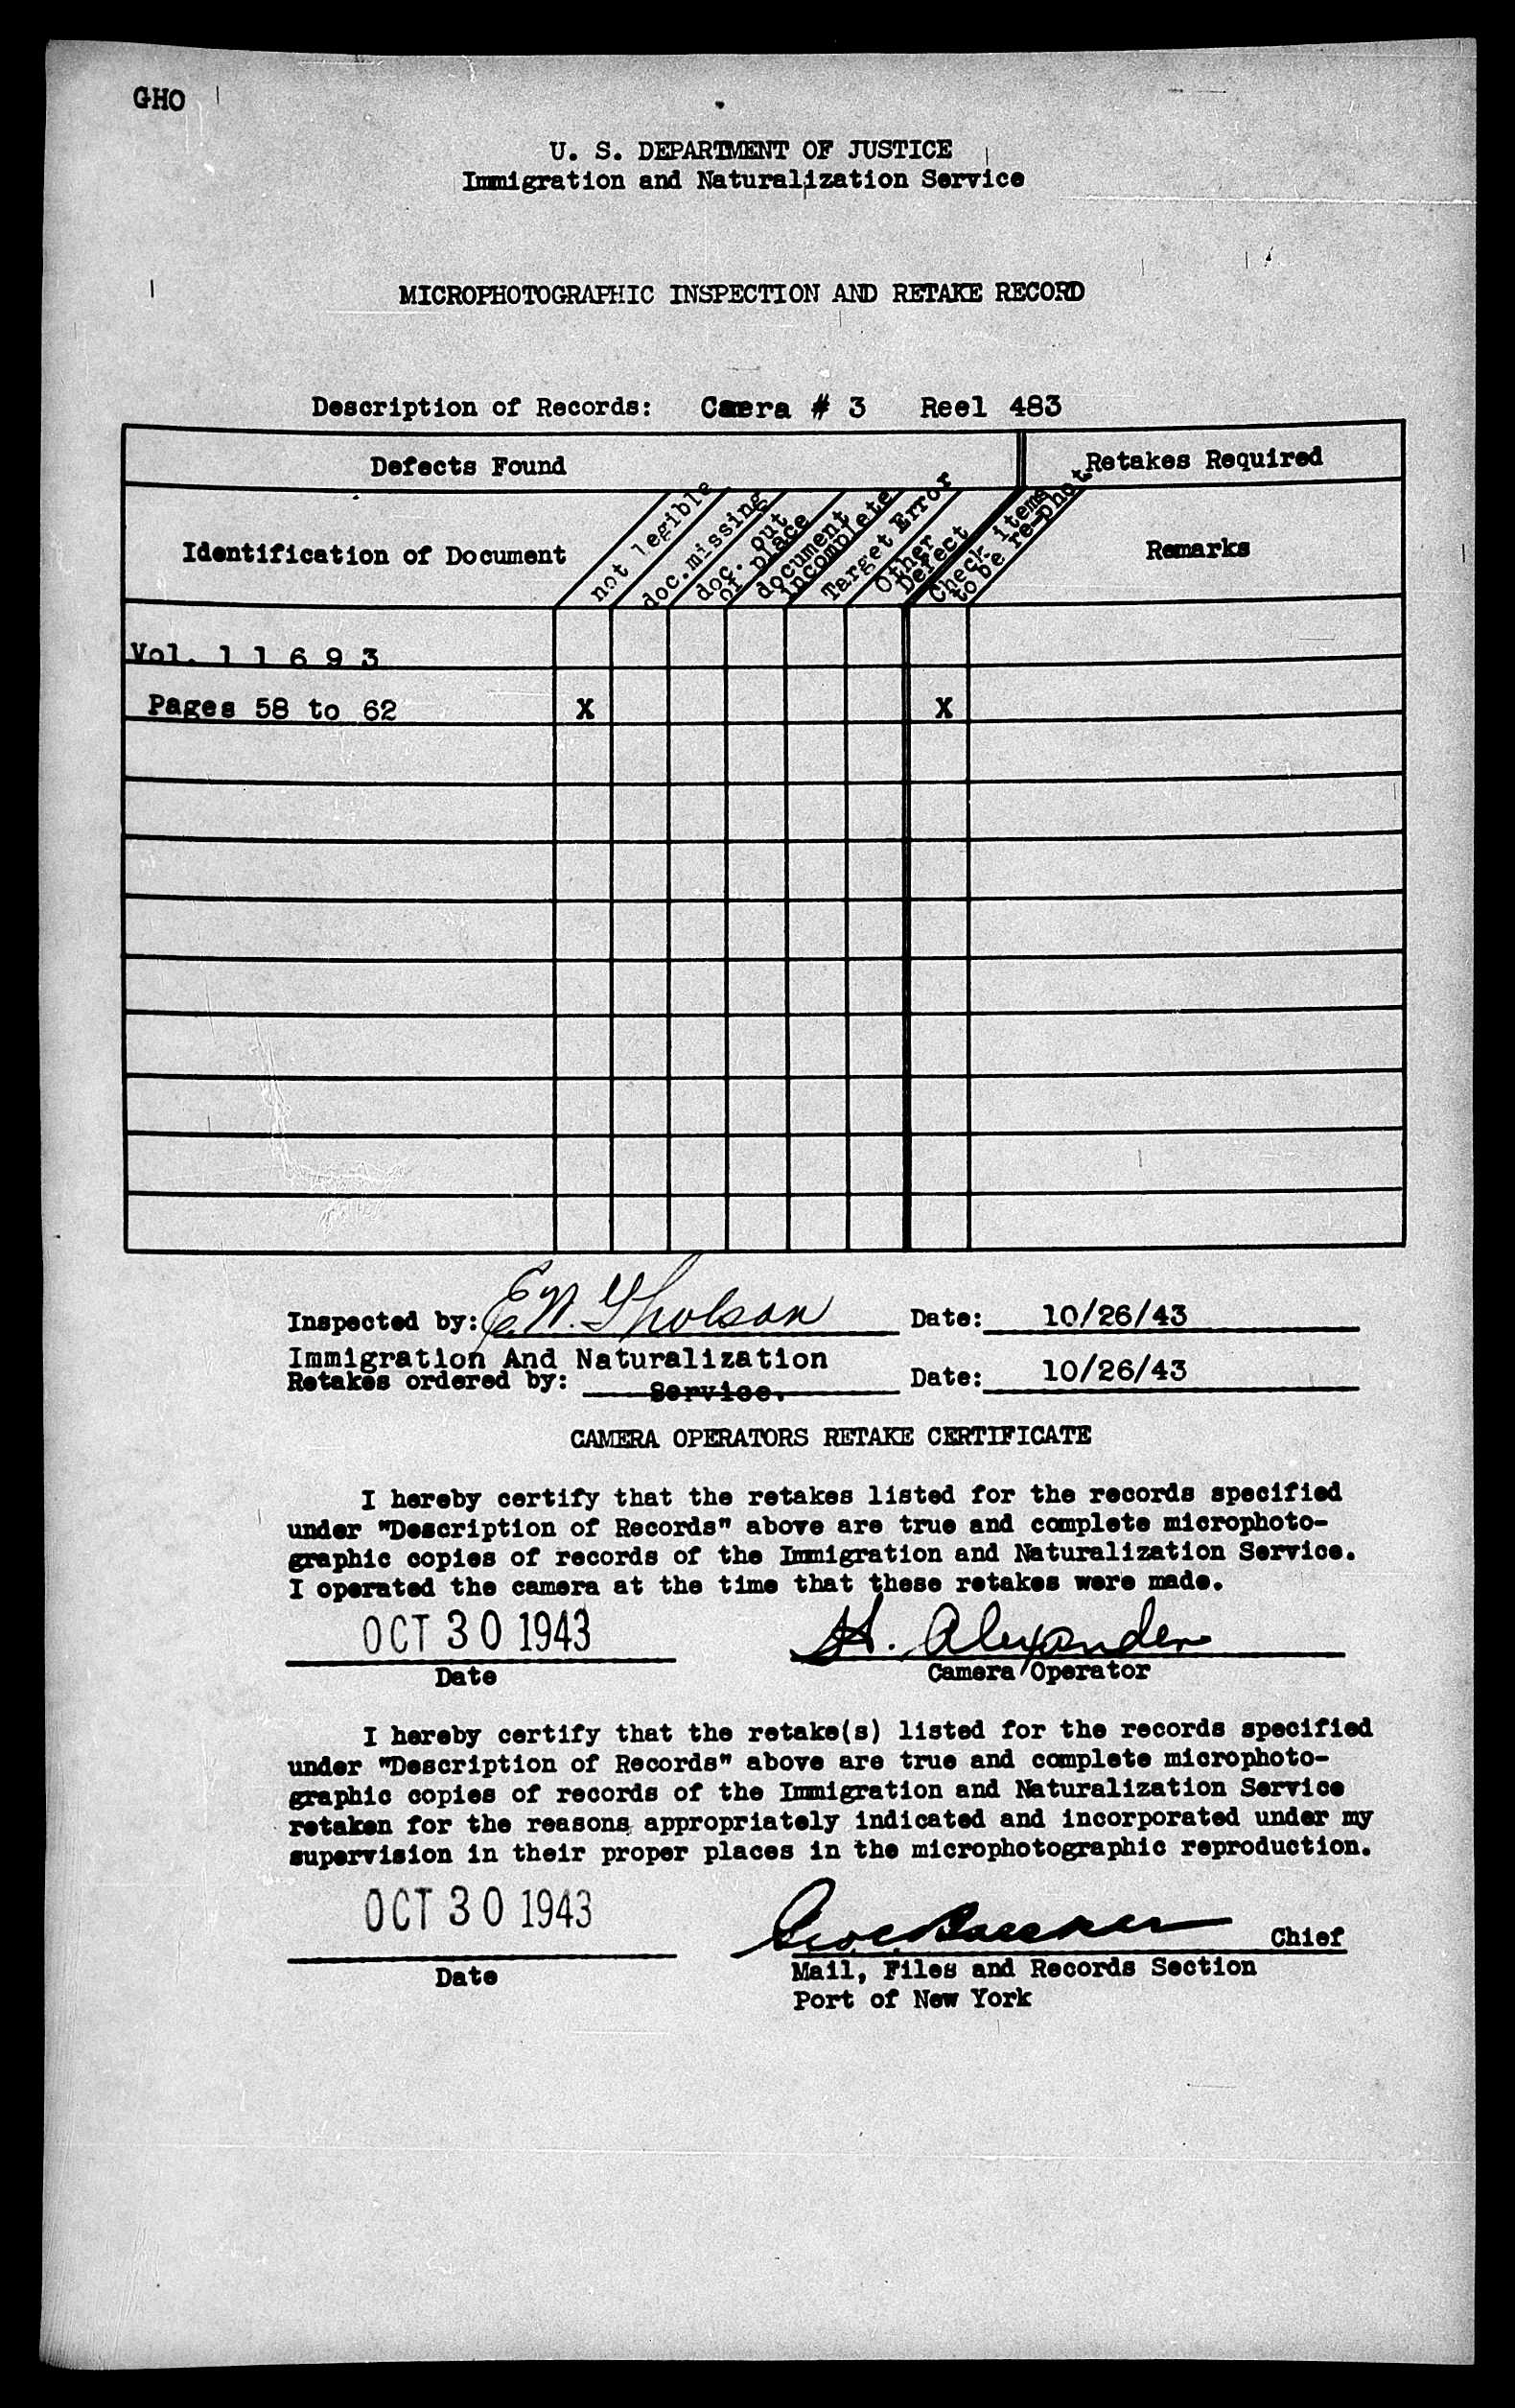 GHO
U. S. DEPARTMENT OF JUSTICE
Immigration and Naturalization Service
MICROPHOTOGRAPHIC INSPECTION AND RETAKE RECORD
Description of Records: Camera # 3 Reel 483
Defects Found
Retakes Required
Identification of Document
not legible
doc. missing
doc. out of place
document incomplete
Target Error
Other Defect
Check items to be re-phot.
Remarks
Vol. 1 1 6 9 3
Pages 58 to 62 X X
Inspected by: E. N. Gholson Date: 10/26/43
Immigration And Naturalization
Retakes ordered by: Service. Date: 10/26/43
CAMERA OPERATORS RETAKE CERTIFICATE
I hereby certify that the retakes listed for the records specified
under "Description of Records" above are true and complete microphoto-
graphic copies of records of the Immigration and Naturalization Service.
I operated the camera at the time that these retakes were made.
OCT 30 1943 H. Alexander
Date Camera Operator
I hereby certify that the retake(s) listed for the records specified
under "Description of Records" above are true and complete microphoto-
graphic copies of records of the Immigration and Naturalization Service
retaken for the reasons appropriately indicated and incorporated under my
supervision in their proper places in the microphotographic reproduction.
OCT 30 1943 Chief
Date Mail, Files and Records Section
Port of New York